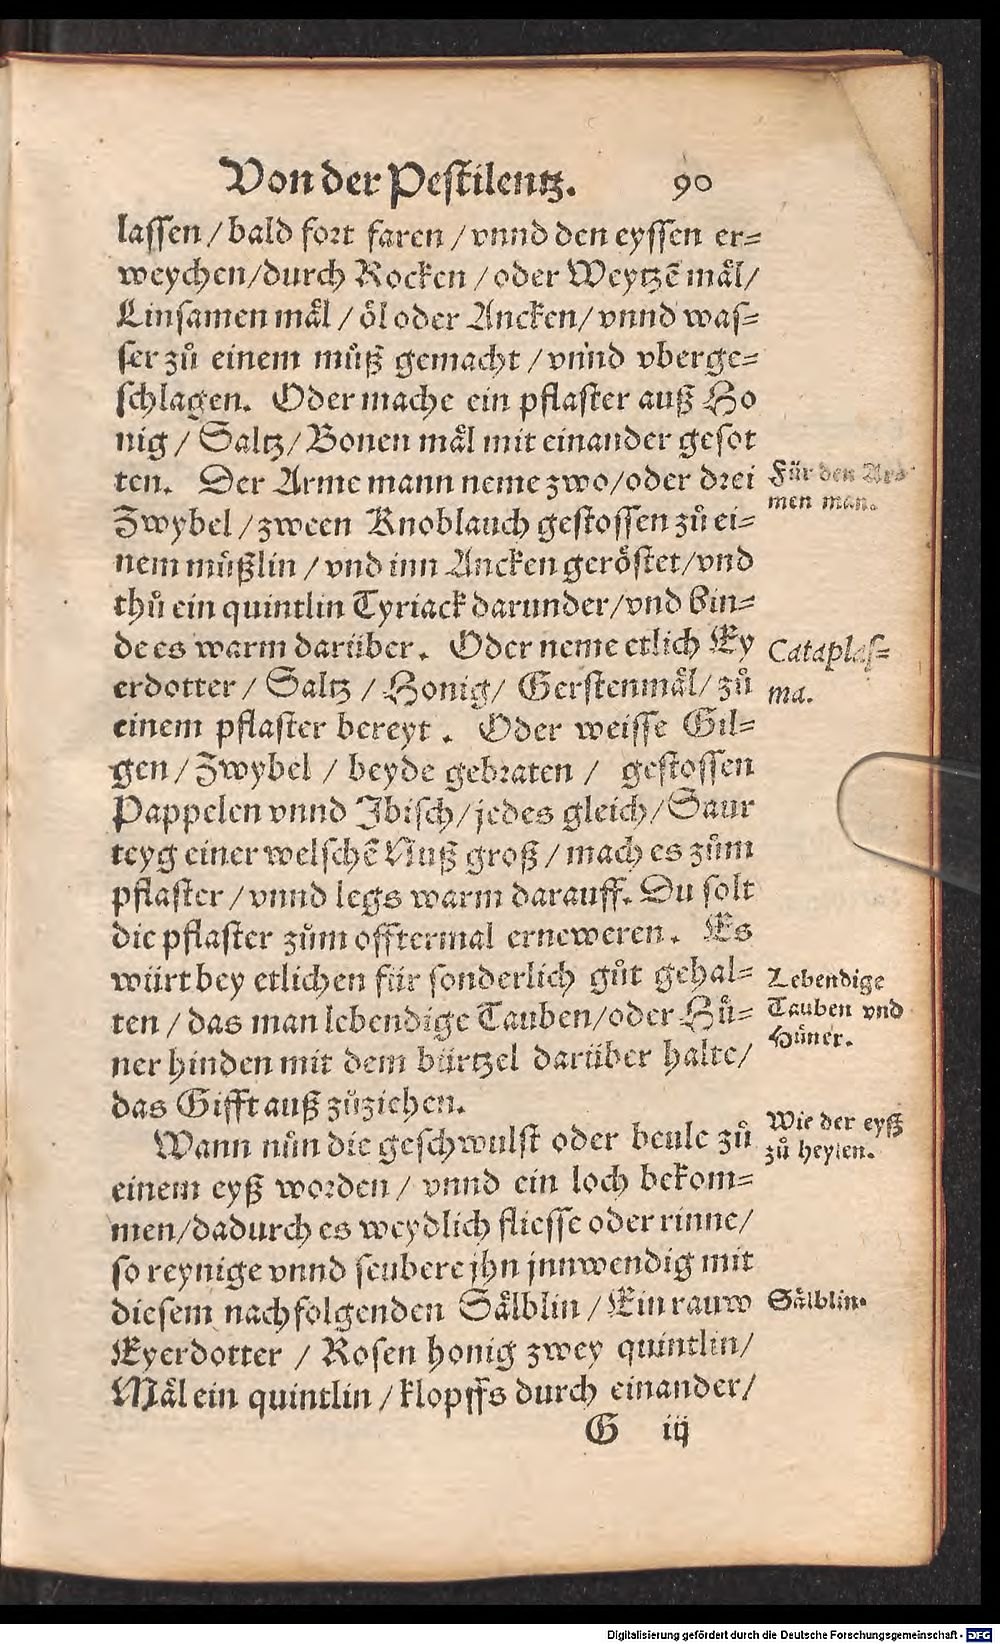 Von der Pestilentz. 90
lassen / bald fort faren / vnnd den eyssen er=
weychen / durch Rocken / oder Weytzẽ mål /
Linsamen mål / ŏl oder Ancken / vnnd was=
ser zů einem můß gemacht / vnnd vberge=
schlagen. Oder mache ein pflaster auß Ho
nig / Saltz / Bonen mål mit einander gesot
ten. Der Arme mann neme zwo / oder drei
Für den Ar=
men man.
Zwybel / zween Knoblauch gestossen zů ei=
nem můßlin / vnd inn Ancken geröstet / vnd
thů ein quintlin Tyriack darunder / vnd bin=
de es warm darüber. Oder neme etlich Ey
Cataplas=
ma.
erdotter / Saltz / Honig / Gerstenmål / zů
einem pflaster bereyt. Oder weisse Gil=
gen / Zwybel / beyde gebraten / gestossen
Pappelen vnnd Ibisch / jedes gleich / Saur
teyg einer welschẽ Nuß groß / mach es zům
pflaster / vnnd legs warm darauff. Du solt
die pflaster zům offtermal erneweren. Es
würt bey etlichen für sonderlich gůt gehal=
Lebendige
Tauben vnd
Hüner.
ten / das man lebendige Tauben / oder Hů=
ner hinden mit dem bürtzel darüber halte /
das Gifft auß zůziehen.
Wann nůn die geschwulst oder beule zů
Wie der eyß
zů heylen.
einem eyß worden / vnnd ein loch bekom=
men / dadurch es weydlich fliesse oder rinne /
so reynige vnnd seubere jhn jnnwendig mit
diesem nachfolgenden Sålblin / Ein rauw
Sålblin.
Eyerdotter / Rosen honig zwey quintlin /
Mål ein quintlin / klopffs durch einander /
G iij
Digitalisierung gefördert durch die Deutsche Forschungsgemeinschaft - DFG